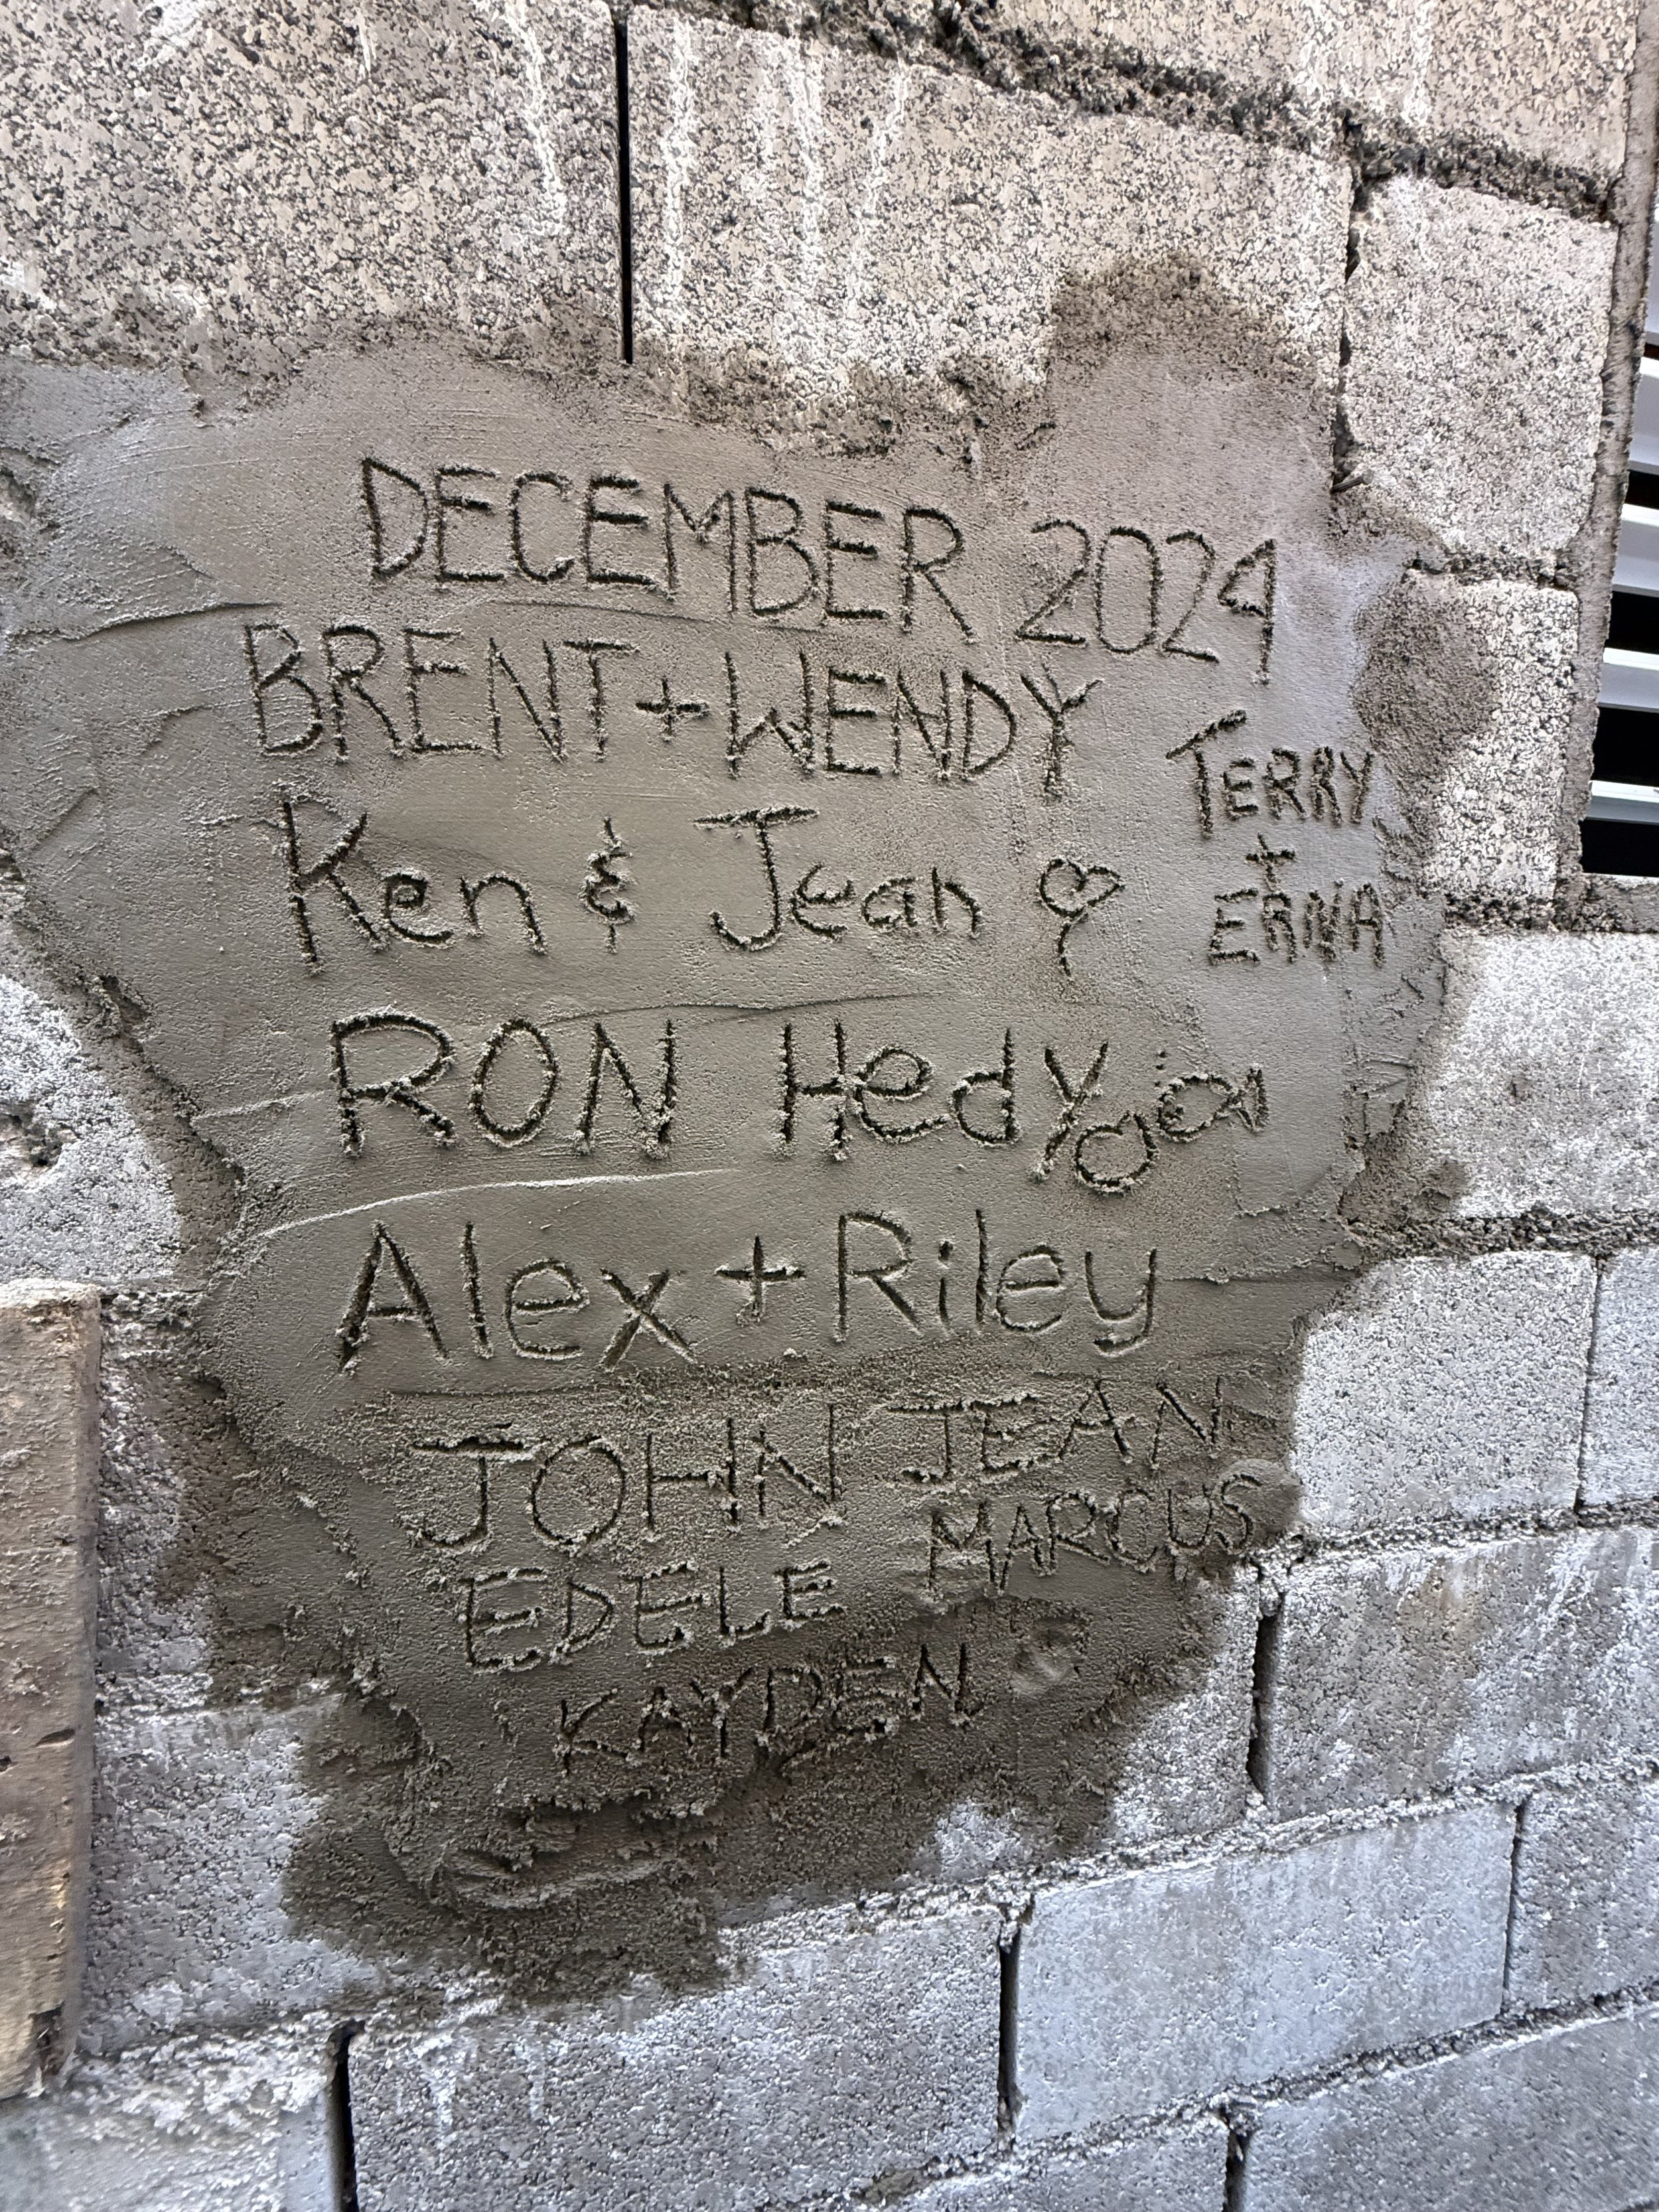 DECEMBER 2024
BRENT + WENDY
TERRY
+
ERNA
Ken & Jean
RON Hedy
Alex + Riley
JOHN JEAN
EDELE MARCUS
KAYDEN